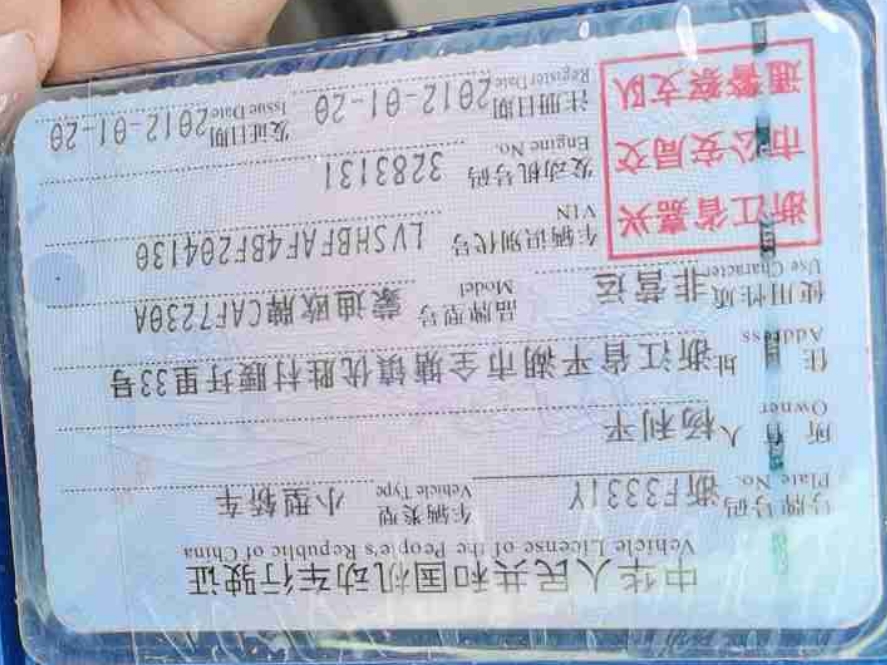 中华人民共和国机动车行驶证
Vehicle License of the People's Republic of China
号牌号码 浙F3331Y 车辆类型 小型轿车
Plate No. Vehicle Type
所有人 杨利平
Owner
住址 浙江省平湖市全塘镇优胜村腰圩里33号
Address
使用性质 非营运 品牌型号 蒙迪欧牌CAF7230A
Use Character Model
浙江省嘉兴
市公安局交
通警察支队
车辆识别代号 LVSHBFAF4BF204130
VIN
发动机号码 3283131
Engine No.
注册日期 2012-01-20 发证日期 2012-01-20
Register Date Issue Date